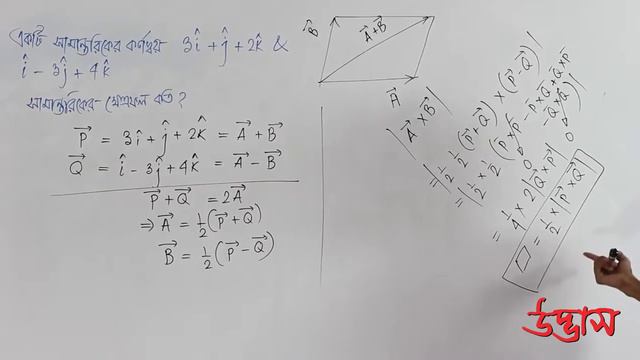 একটি সামান্তরিকের কর্ণদ্বয় 3î + ĵ + 2k̂ &
î − 3ĵ + 4k̂
সামান্তরিকের ক্ষেত্রফল কত ?
P⃗ = 3î + ĵ + 2k̂ = A⃗ + B⃗
Q⃗ = î − 3ĵ + 4k̂ = A⃗ − B⃗
P⃗ + Q⃗ = 2A⃗
⇒ A⃗ = ½(P⃗ + Q⃗)
B⃗ = ½(P⃗ − Q⃗)
B⃗
A⃗+B⃗
A⃗
|A⃗ × B⃗|
= |½ ½ (P⃗+Q⃗) × (P⃗−Q⃗)|
= |½ × ½ (P⃗×P⃗ − P⃗×Q⃗ + Q⃗×P⃗ − Q⃗×Q⃗)|
0 0
= ¼ × 2|Q⃗ × P⃗|
▱ = ½ × |P⃗ × Q⃗|
উদ্ভাস